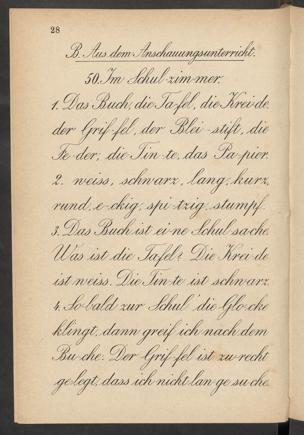 28
B. Aus dem Anschauungsunterricht.
50. Im Schul-zim-mer.
1. Das Buch, die Ta-fel, die Krei-de,
der Grif-fel, der Blei-stift, die
Fe-der, die Tin-te, das Pa-pier.
2. weiss, schwarz, lang, kurz,
rund, e-ckig, spi-tzig, stumpf.
3. Das Buch ist ei-ne Schulsache.
Was ist die Tafel? Die Krei-de
ist weiss. Die Tin-te ist schwarz.
4. So-bald zur Schul' die Glo-cke
klingt, dann greif ich nach dem
Bu-che. Der Grif-fel ist zu-recht
ge-legt, dass ich nicht lan-ge su-che.